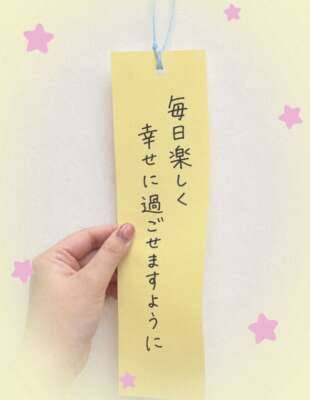 毎日楽しく
幸せに過ごせますように